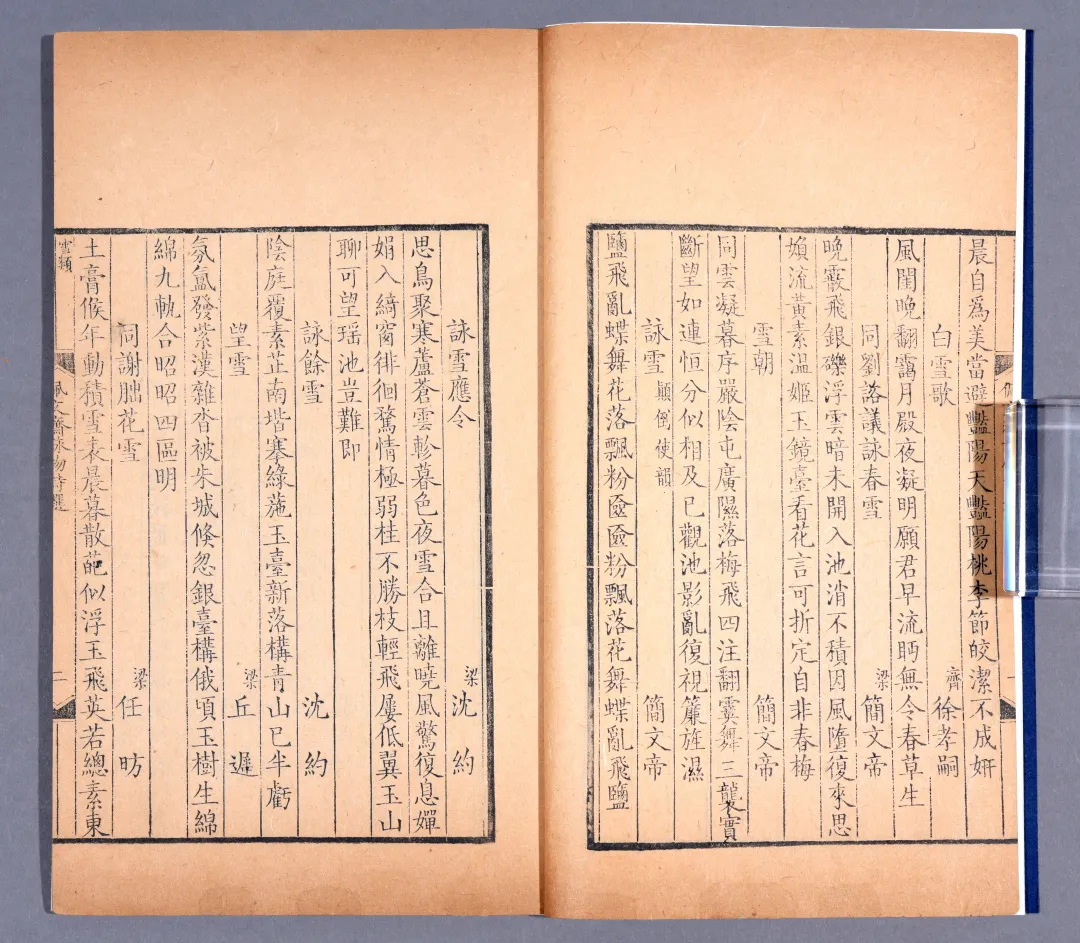 晨自為美當避豔陽天豔陽桃李節皎潔不成妍
白雪歌 齊 徐孝嗣
風閨晚翻靄月殿夜凝明願君早流眄無令春草生
同劉諮議詠春雪 梁 簡文帝
晚霰飛銀礫浮雲暗未開入池消不積因風墮復來思
婦流黃素温姬玉鏡臺看花言可折定自非春梅
雪朝 簡文帝
同雲凝暮序嚴陰屯廣隰落梅飛四注翻霙舞三襲實
斷望如連恒分似相及已觀池影亂復視簾旌濕
詠雪 顛倒使韻 簡文帝
鹽飛亂蝶舞花落飄粉奩奩粉飄落花舞蝶亂飛鹽
詠雪應令 梁 沈約
思鳥聚寒蘆蒼雲軫暮色夜雪合且離曉風驚復息嬋
娟入綺窗徘徊騖情極弱桂不勝枝輕飛屢低翼玉山
聊可望瑤池豈難即
詠餘雪 沈約
陰庭覆素芷南堦褰綠葹玉臺新落構青山已半虧
望雪 梁 丘遲
氛氳發紫漢雜沓被朱城倏忽銀臺構俄頃玉樹生綿
綿九軌合昭昭四區明
同謝朏花雪 梁 任昉
土膏候年動積雪表晨暮散葩似浮玉飛英若總素東
雪類 佩文齋詠物詩選 二